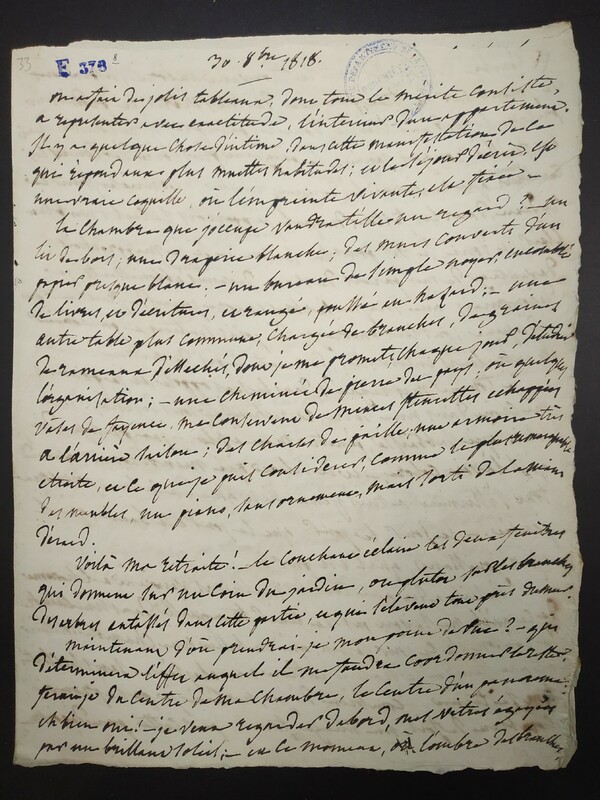 33
E 378 8
30 8bre 1818.
on a fait de jolis tableaux, dont tout le mérite consiste,
a représenter avec exactitude, l'interieur d'un appartement.
Il y a quelque chose d'intime, dans cette manifestation de la
qui repond aux plus muettes habitudes; et le séjour d'écrire, est
une vraie coquille, où l'empreinte vivante, est
la chambre que j'occupe vaudra t'elle un regard? - un
lit de bois; une draperie blanche; des murs couverts d'un
papier presque blanc; - une bureau de simple noyer, encombré
de livres, et d'écritures, et rangé, poussé au hazard; - une
autre table plus commune, chargée de branches, de graines
de rameaux dessechés, dont je me promet, chaque jour, d'étudier
l'organisation; - une cheminée de pierre du pays, où quelques
vases de fayence, me conservent de minces fleurettes echappées
a l'arrière saison; des chaises de paille, une armoire très
etroite, et ce que je puis considérer, comme le plus remarquable
des meubles, un piano, sans ornement, mais sorti de la main
d'érard.
Voilà ma retraite! - le couchant éclaire les deux fenêtres
qui donnent sur un coin du jardin, ou plutot sur les branches
des arbres entassés dans cette partie, et qui s'élèvent tout près du mur.
maintenant d'où prendrai-je mon point de vue? - qui
déterminera l'effet auquel il me faudra coordonner le reste.
ferai-je du centre de ma chambre, le centre d'un panorama:
eh bien oui! - je veux regarder d'abord, mes vitres égayées
par un brillant soleil; - en ce moment, l'ombre des branches